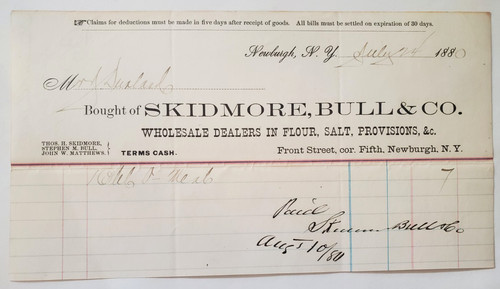 Claims for deductions must be made in five days after receipt of goods. All bills must be settled on expiration of 30 days.
Newburgh, N. Y. July 1880
M
Bought of SKIDMORE, BULL & CO.
WHOLESALE DEALERS IN FLOUR, SALT, PROVISIONS, &c.
THOS. H. SKIDMORE,
STEPHEN M. BULL,
JOHN W. MATTHEWS.
TERMS CASH.
Front Street, cor. Fifth, Newburgh, N. Y.
Meal 7
Paid
Bull & Co
Aug 10/80